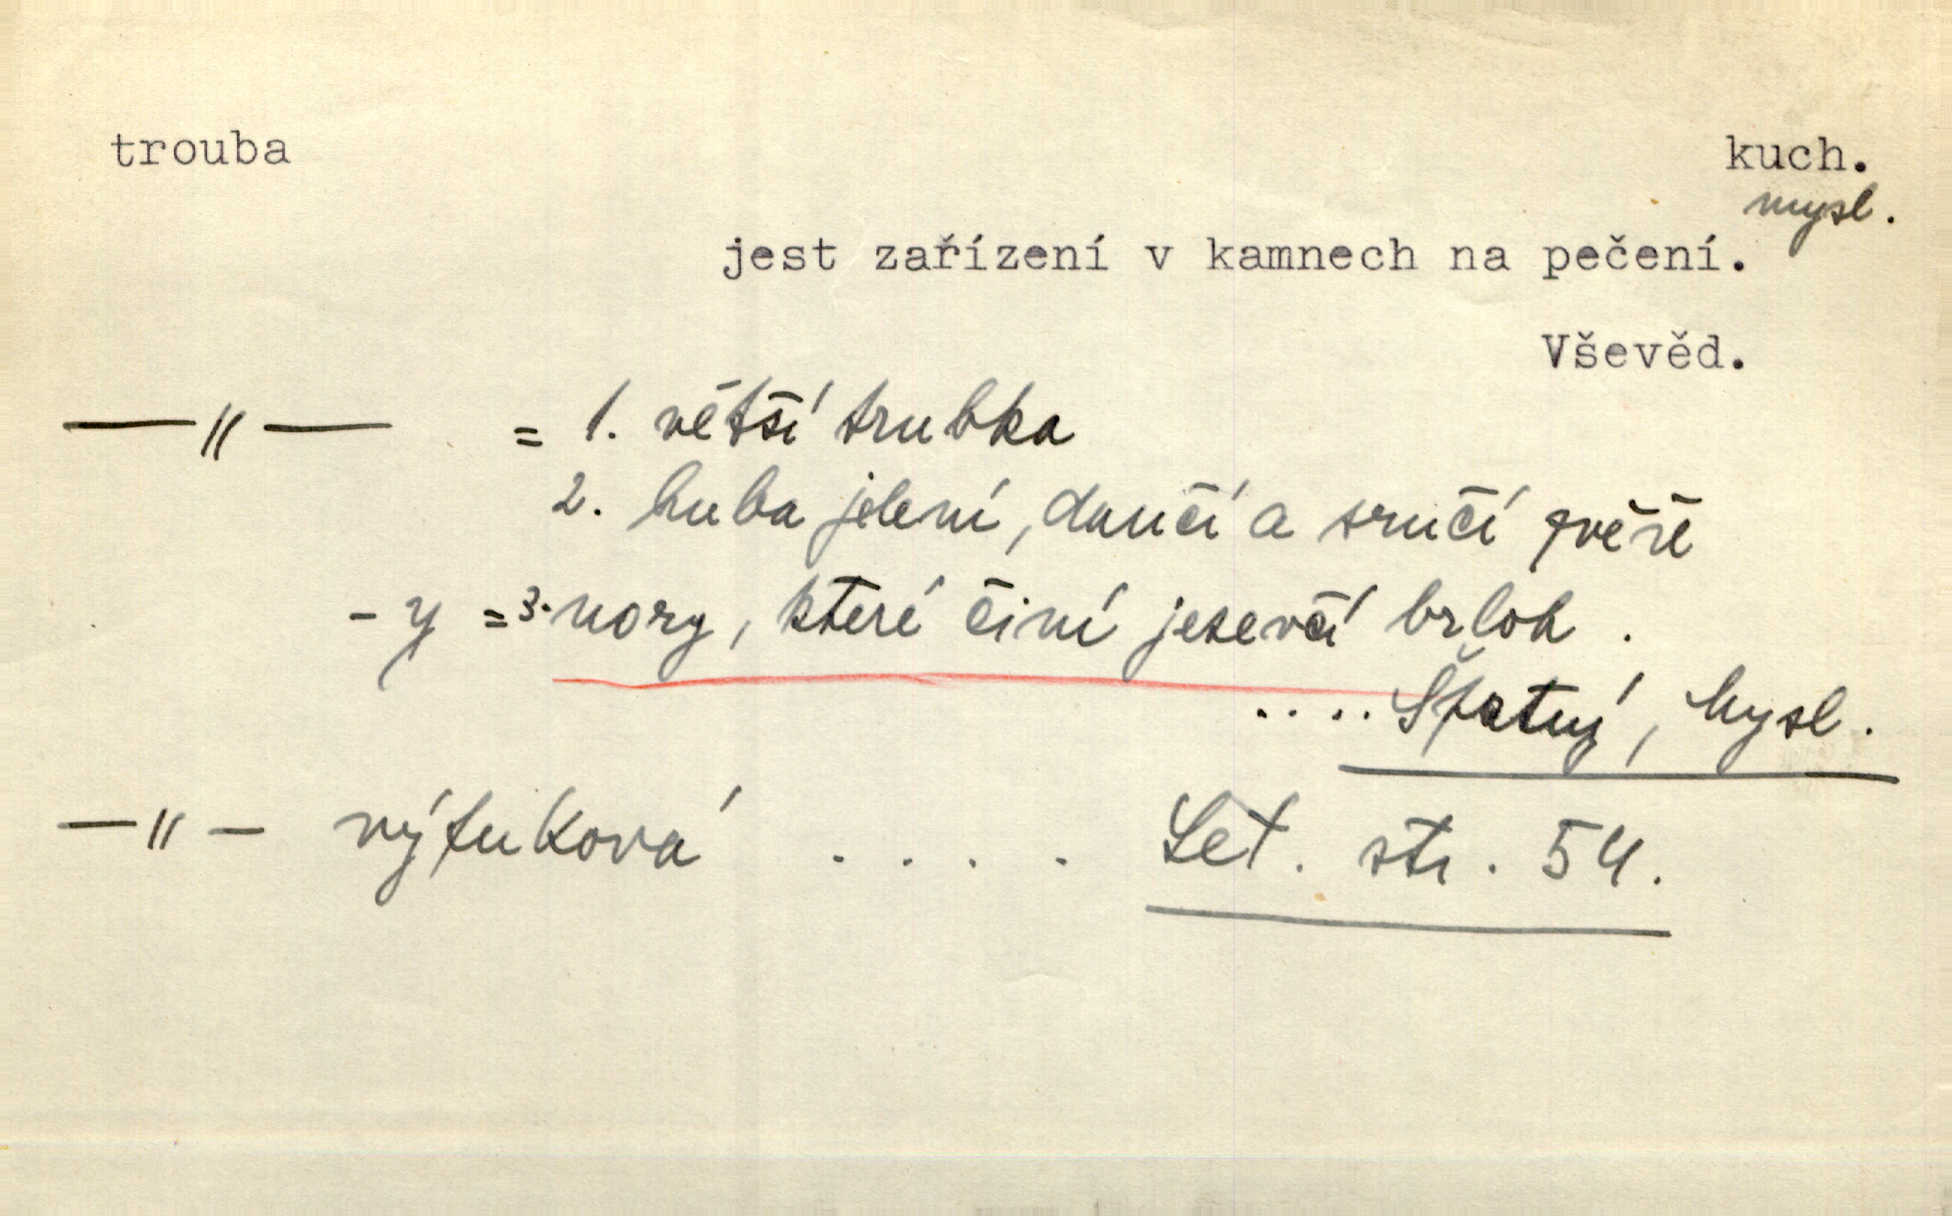 trouba kuch.
mysl.
jest zařízení v kamnech na pečení.
Vševěd.
—"— = 1. větší trubka
2. huba jelení, dančí a srnčí zvěře
- y = 3. nory, které činí jezevčí brloh.
.... Špatný, Mysl.
—"— výfuková .... Let. str. 54.